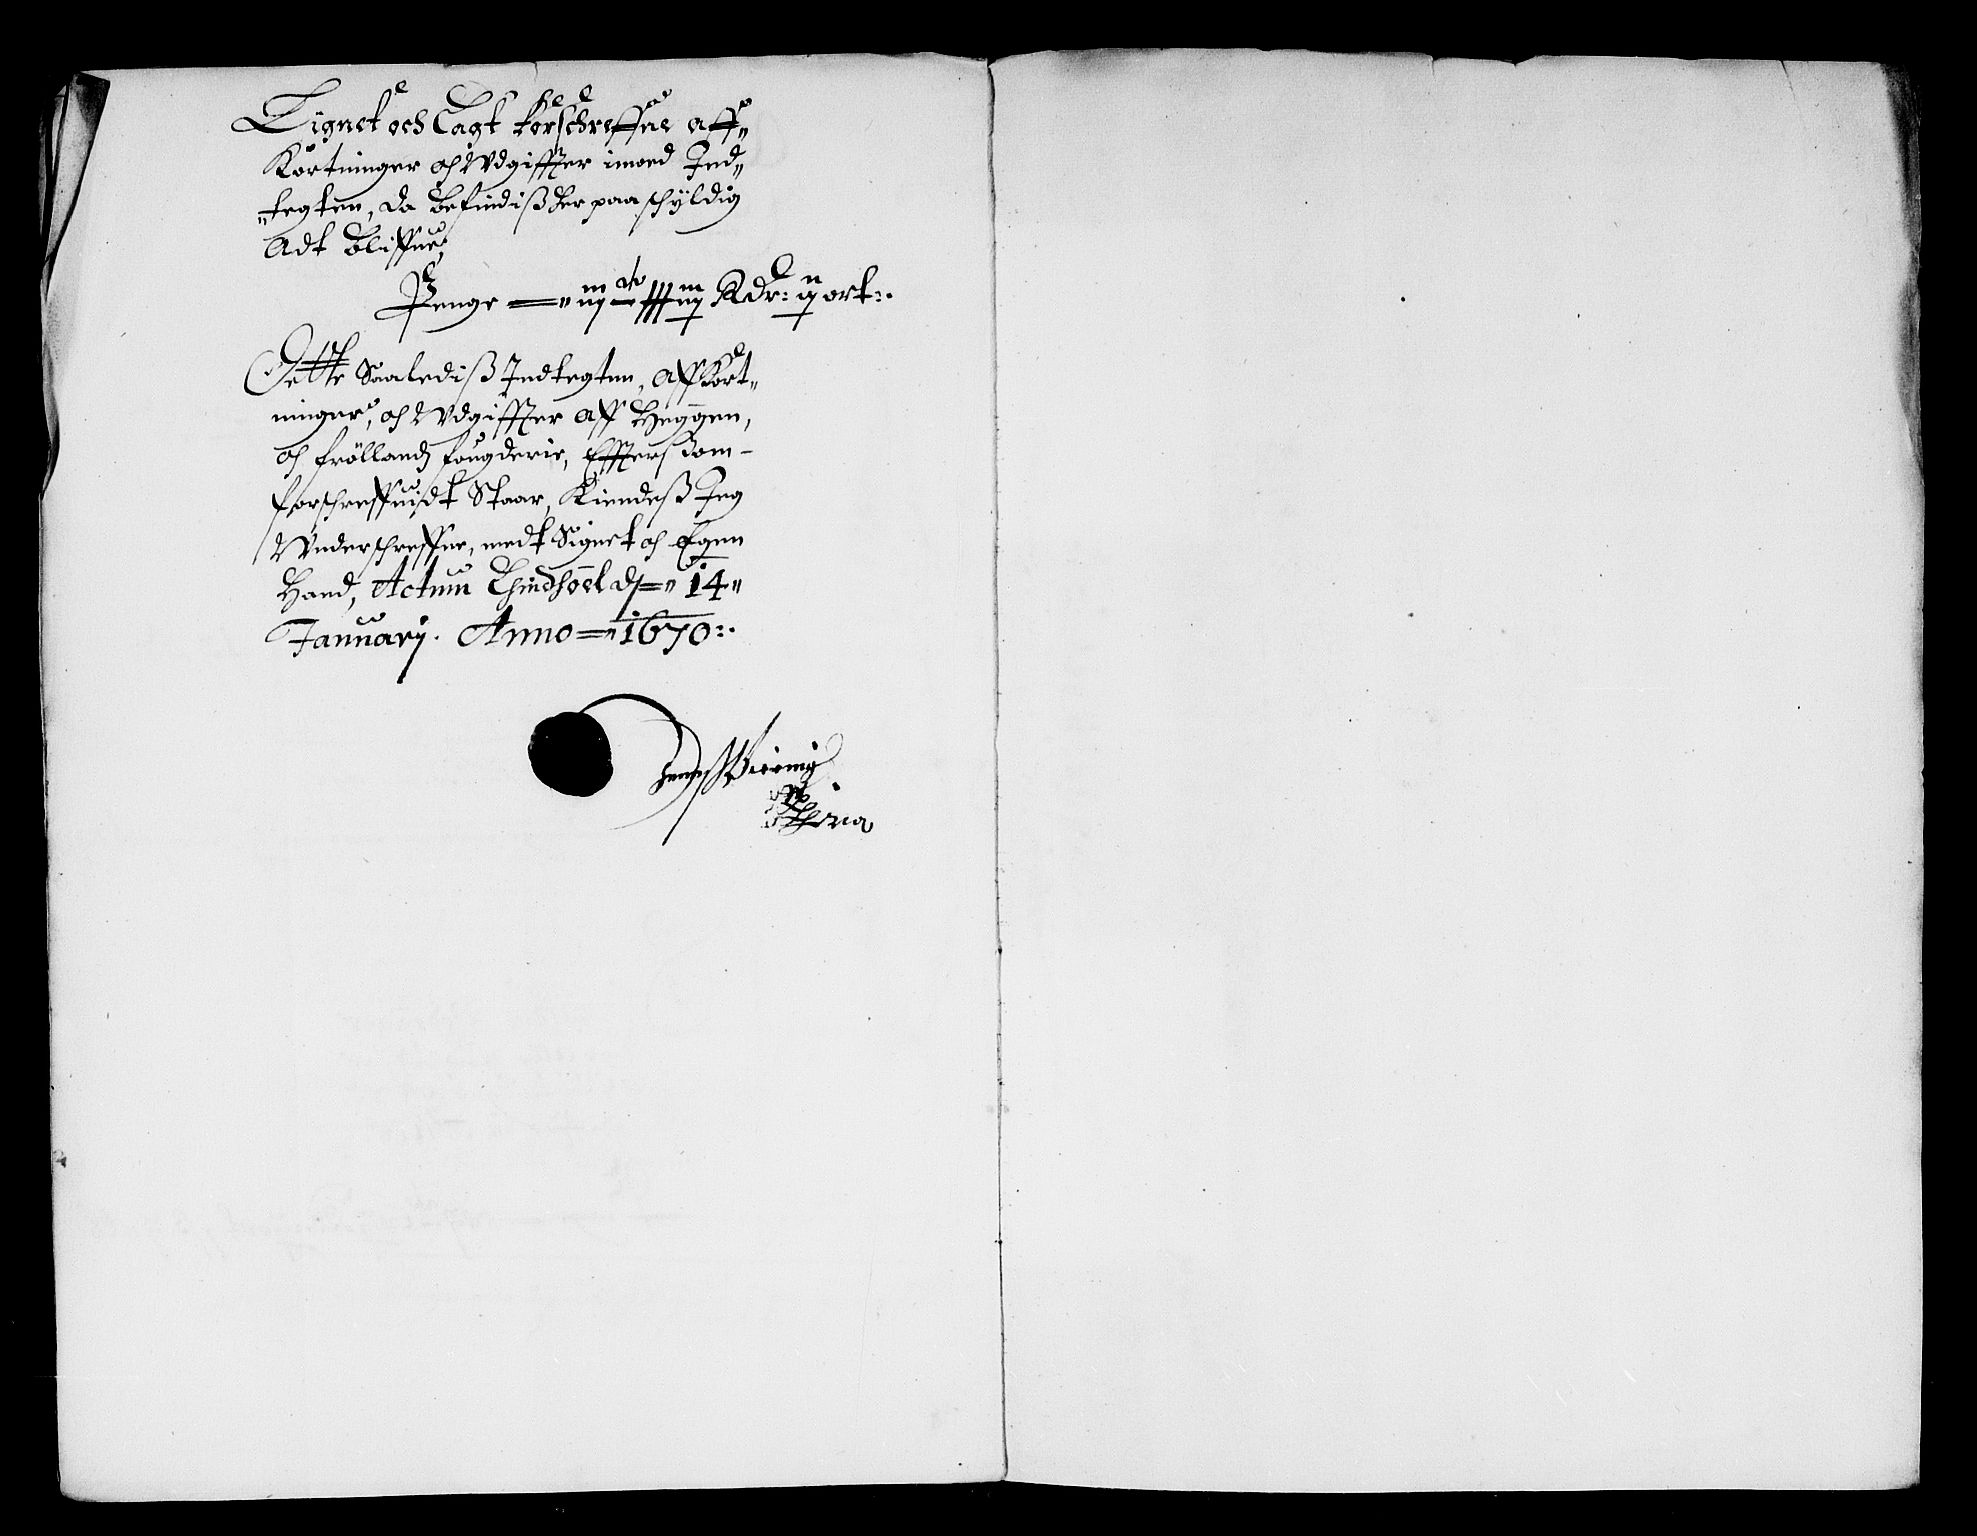 Lignet och Lagt forschreffne aff„
Kortninger och Wdgiffter imoed Ind„
„tegten, da befindiß Her paa schÿldig
Adt bliffue,
Penge Rdr: ort:
Dette Saalediß Indtegten, affkort„
ninger, och Wdgiffter aff Heggen,
och Frøllandz fougderie, Effter som
forschreffuidt Staar, Kiendeß Jeg
Wnderschreffne, medt Signet och Egen
Hand, Actum 14„
January. Anno 1670: